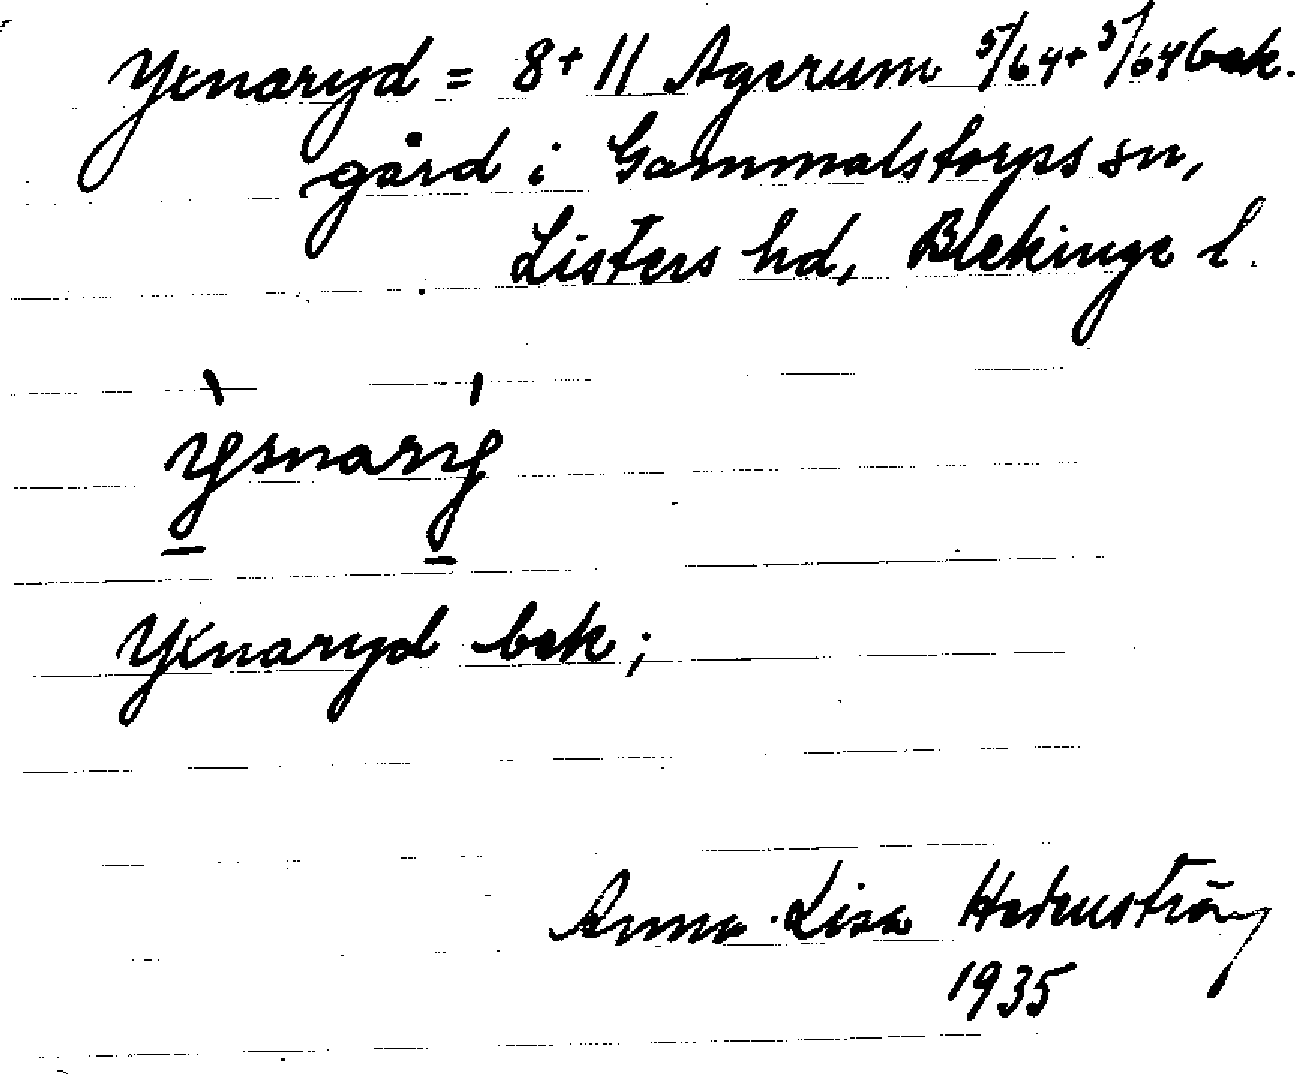 Yxnaryd = 8+11 Agerum 5/64+3/64 bek.
gård i Gammalstorps sn,
Listers hd, Blekinge l.
ỳsnarý
Yxnaryd bek;
Anna-Lisa Hedenström
1935